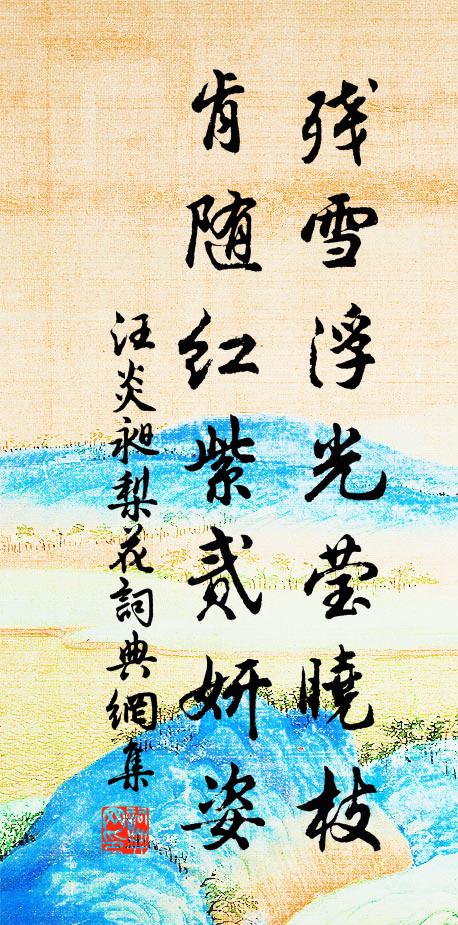 残雪浮光莹曉枝
肯随红紫贰妍姿
汪炎昶梨花詞典網集